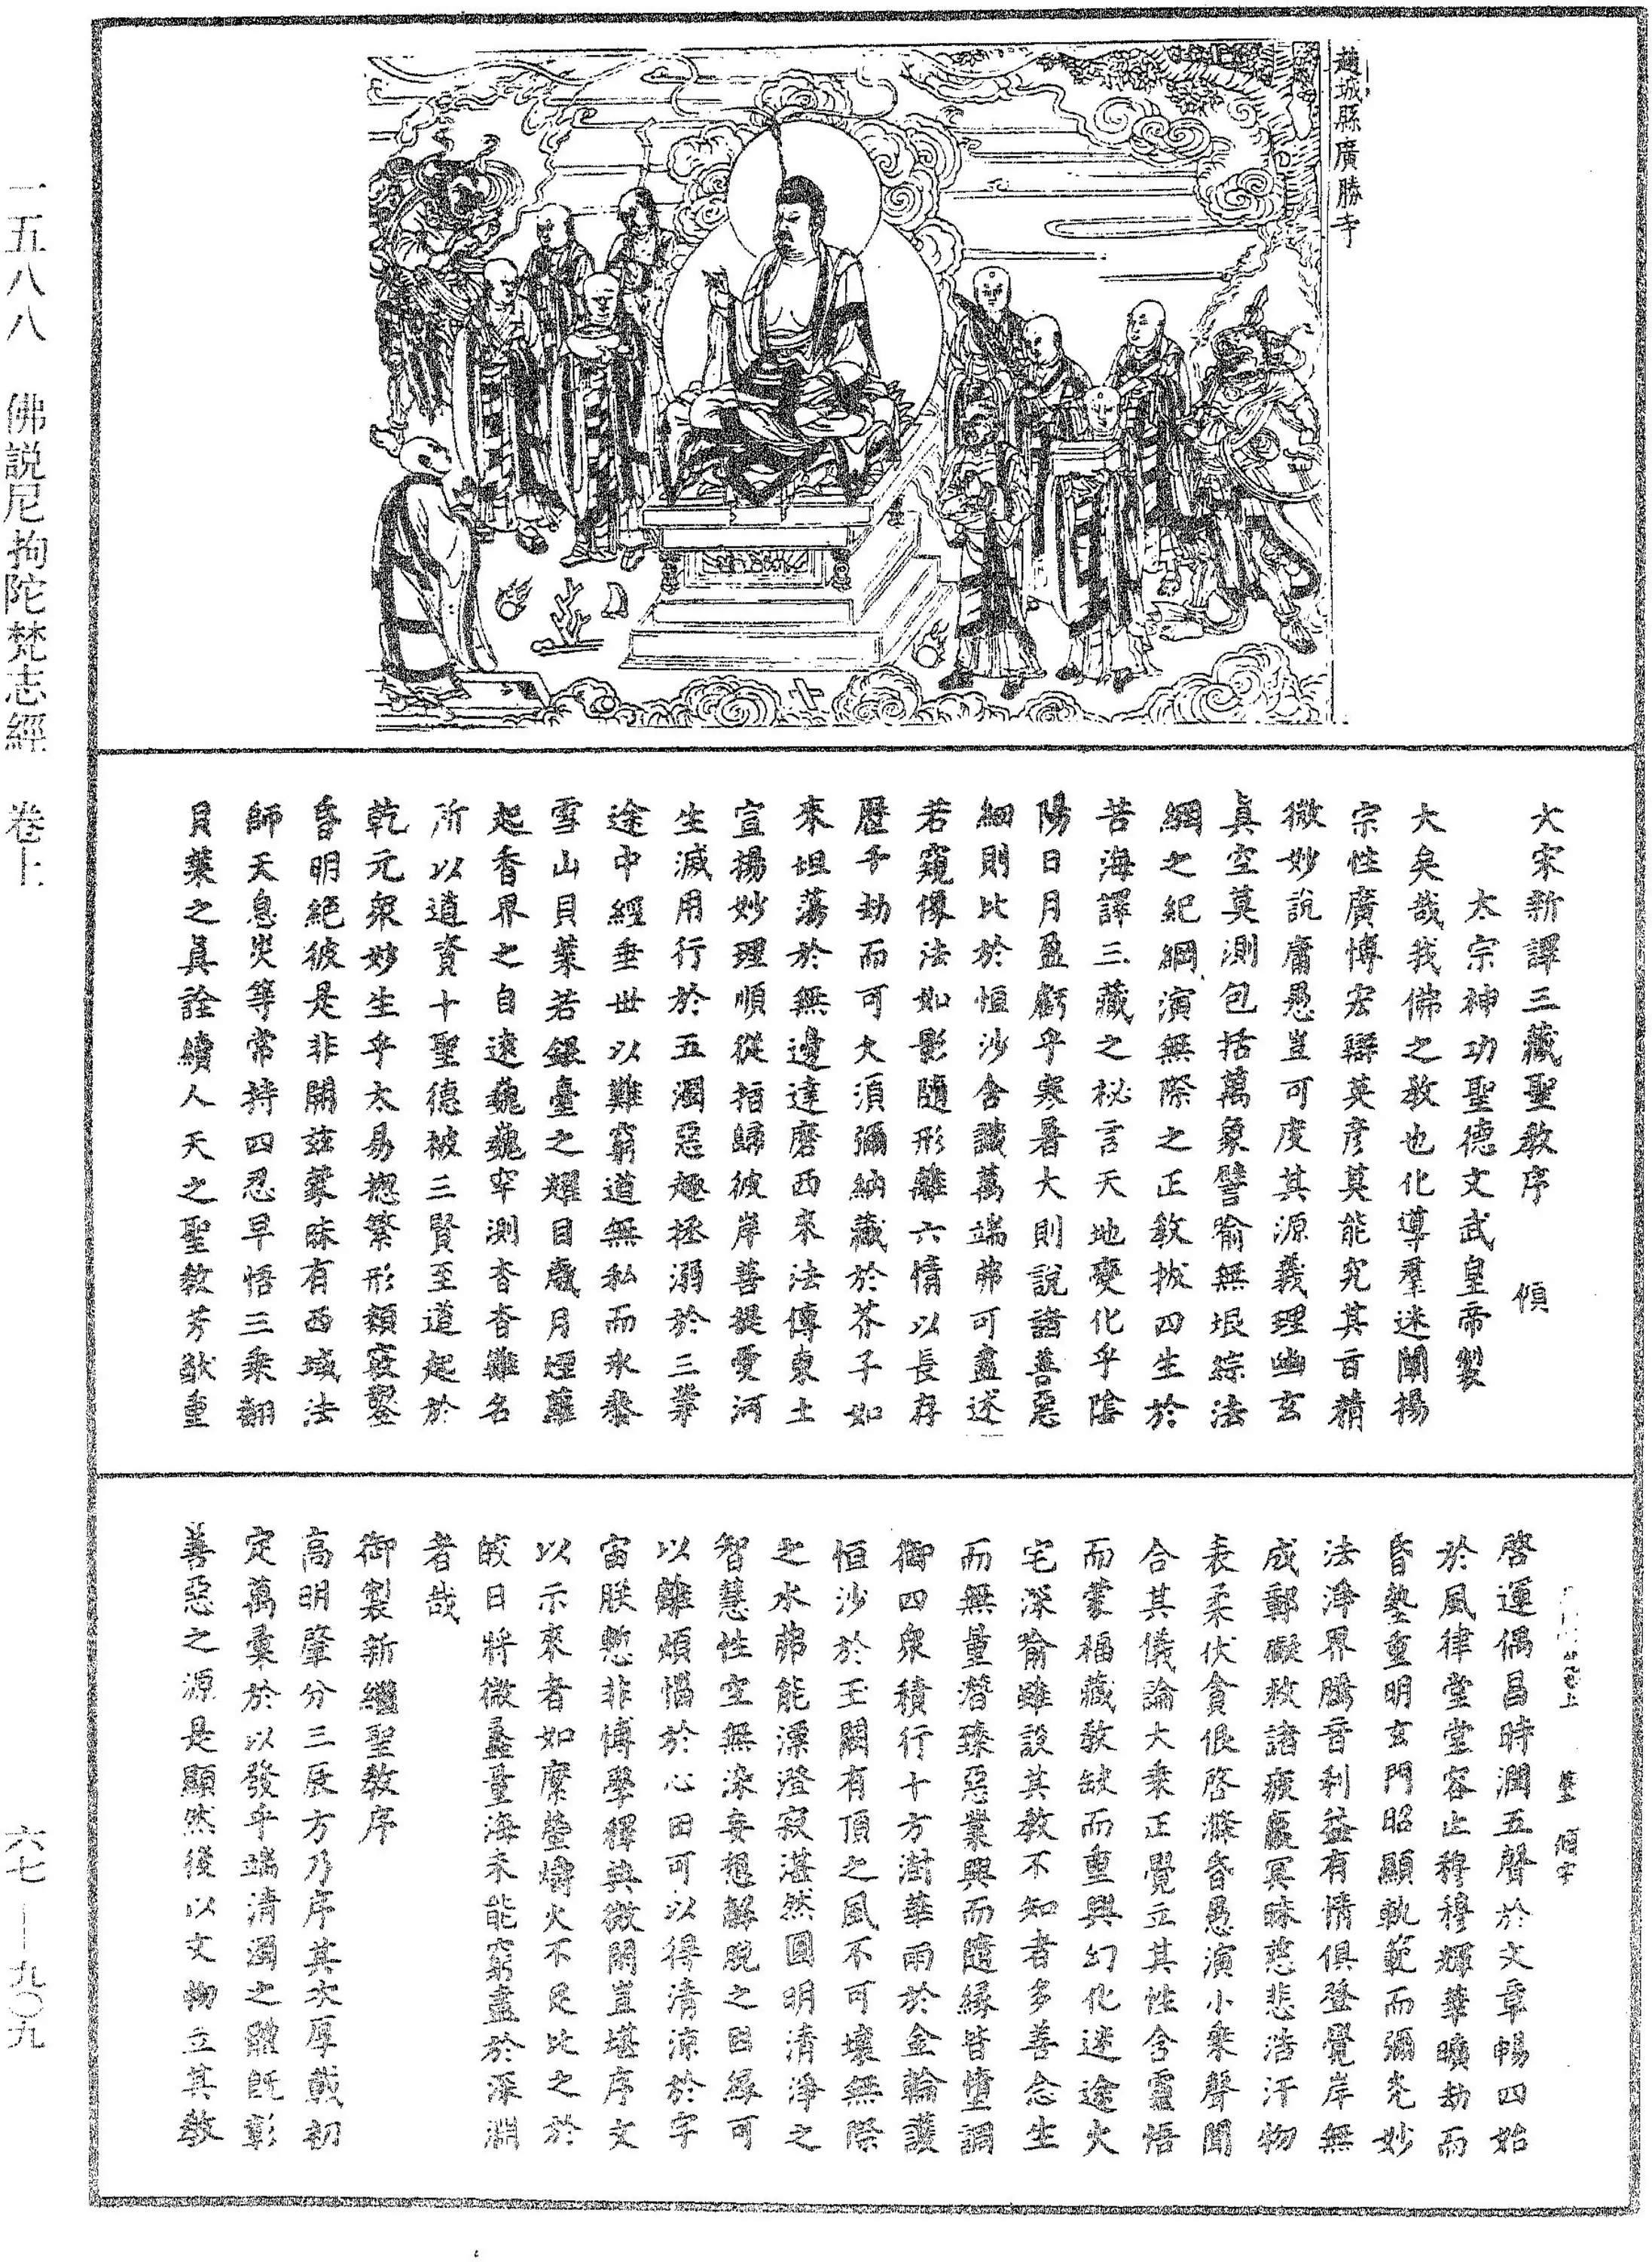 趙城縣廣勝寺
大宋新譯三藏聖教序　傾
太宗神功聖德文武皇帝製
大矣哉我佛之教也化導羣迷闡揚
宗性廣博宏辯英彦莫能究其旨精
微妙說庸愚豈可度其源義理幽玄
真空莫測包括萬象譬喻無垠綜法
網之紀綱演無際之正教拔四生於
苦海譯三藏之秘言天地變化乎陰
陽日月盈虧乎寒暑大則說諸善惡
細則比於恒沙含識萬端弗可盡述
若窺像法如影隨形離六情以長存
歷千劫而可久須彌納藏於芥子如
來坦蕩於無邊達磨西來法傳東土
宣揚妙理順從指歸彼岸菩提愛河
生滅用行於五濁惡趣拯溺於三業
途中經垂世以難窮道無私而永泰
雪山貝葉若銀臺之耀目歲月煙蘿
起香界之自遠巍巍罕測杳杳難名
所以道資十聖德被三賢至道起於
乾元衆妙生乎太易惣繁形類竅鑿
昏明絕彼是非開茲蒙昧有西域法
師天息灾等常持四忍早悟三乘翻
貝葉之真詮續人天之聖教芳猷重
啓運偶昌時潤五聲於文章暢四始
於風律堂堂容止穆穆輝華曠劫而
昏墊重明玄門昭顯軌範而彌光妙
法淨界騰音利益有情俱登覺岸無
成郵礙救諸疲羸冥昧慈悲浩汗物
表柔伏貪佷啓滌昏愚演小乘聲聞
合其儀論大乘正覺立其性含靈悟
而蒙福藏教缺而重興幻化迷途火
宅深喻雖設其教不知者多善念生
而無量潛臻惡業興而隨緣皆墮調
御四衆積行十方澍華雨於金輪護
恒沙於玉闕有頂之風不可壞無際
之水弗能漂澄寂湛然圓明清淨之
智慧性空無染妄想解脫之因緣可
以離煩惱於心田可以得清涼於宇
宙朕慙非博學釋典微閑豈堪序文
以示來者如縻螢爝火不足比之於
皎日將微蠡量海未能窮盡於深淵
者哉
御製新繼聖教序
高明肇分三辰方乃序其次厚載初
定萬彙於以發乎端清濁之體既彰
善惡之源是顯然後以文物立其教
一五八八　佛說尼拘陀梵志經　卷上
六七——九〇九